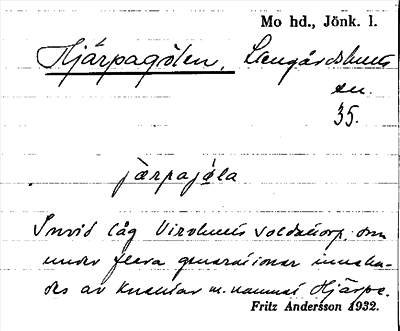 Mo hd., Jönk. l.
Hjärpagölen, Ljungårdshults
sn.
35.
järpajöla
Invid låg Virshults soldattorp, som
under flera generationer inneha-
des av knektar m. namnet Hjärpe.
Fritz Andersson 1932.